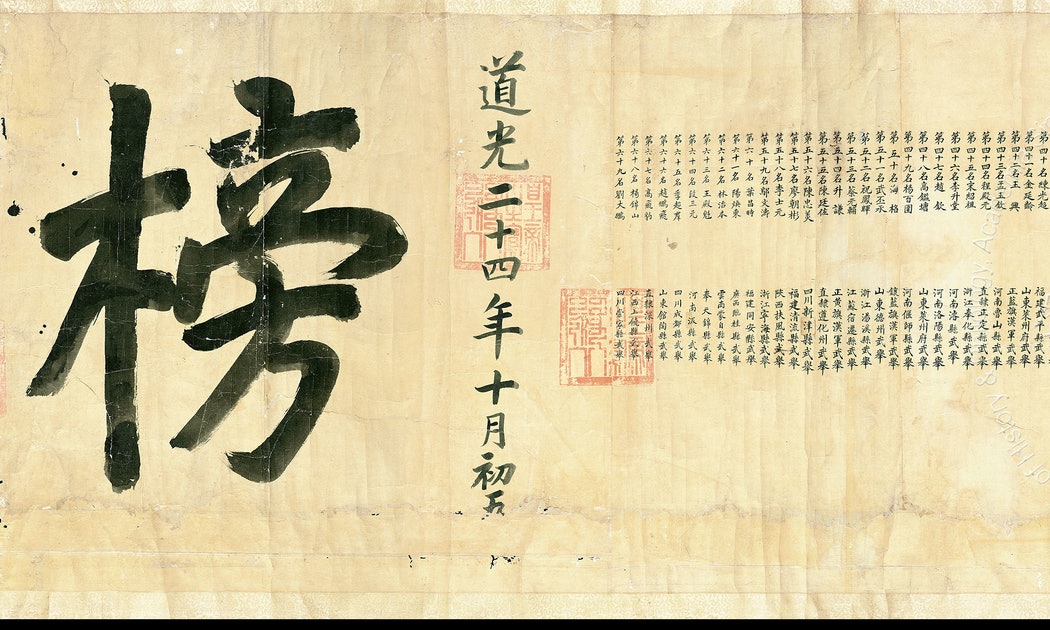 第四十名練光超 福建武平縣武舉
第四十一名金廷齡 山東萊州府武舉
第四十二名王興 正藍旗漢軍武舉
第四十三名孟玉欽 河南魯山縣武舉
第四十四名程殿元 直隸正定縣武舉
第四十五名宋紹祖 浙江奉化縣武舉
第四十六名李升堂 河南洛縣武舉
第四十七名趙欽 河南洛陽縣武舉
第四十八名高鑑墉 山東萊州府武舉
第四十九名楊百圖 河南偃師縣武舉
第五十名海格 鑲藍旗漢軍武舉
第五十一名武丕承 山東德州武舉
第五十二名祝鳳暉 浙江湯溪縣武舉
第五十三名蔡光輔 江蘇宿遷縣武舉
第五十四名升謙 正黃旗漢軍武舉
第五十五名陳廷佐 直隸遵化州武舉
第五十六名陳忠美 四川新津縣武舉
第五十七名廖朝彬 福建清流縣武舉
第五十八名李士元 陝西扶風縣武舉
第五十九名鄔文濤 浙江寧海縣武舉
第六十名葉昌時 福建同安縣武舉
第六十一名陽煥東 廣西臨桂縣武舉
第六十二名林浩本 雲南蒙自縣武舉
第六十三名王殿魁 奉天錦縣武舉
第六十四名段三元 河南縣武舉
第六十五名李超 四川成都縣武舉
第六十六名趙鵬飛 山東館陶縣武舉
第六十七名高飛豹 直隸深州武舉
第六十八名楊錦山 江西上饒縣武舉
第六十九名劉大鵬 四川縣武舉
道光二十四年十月初五
榜